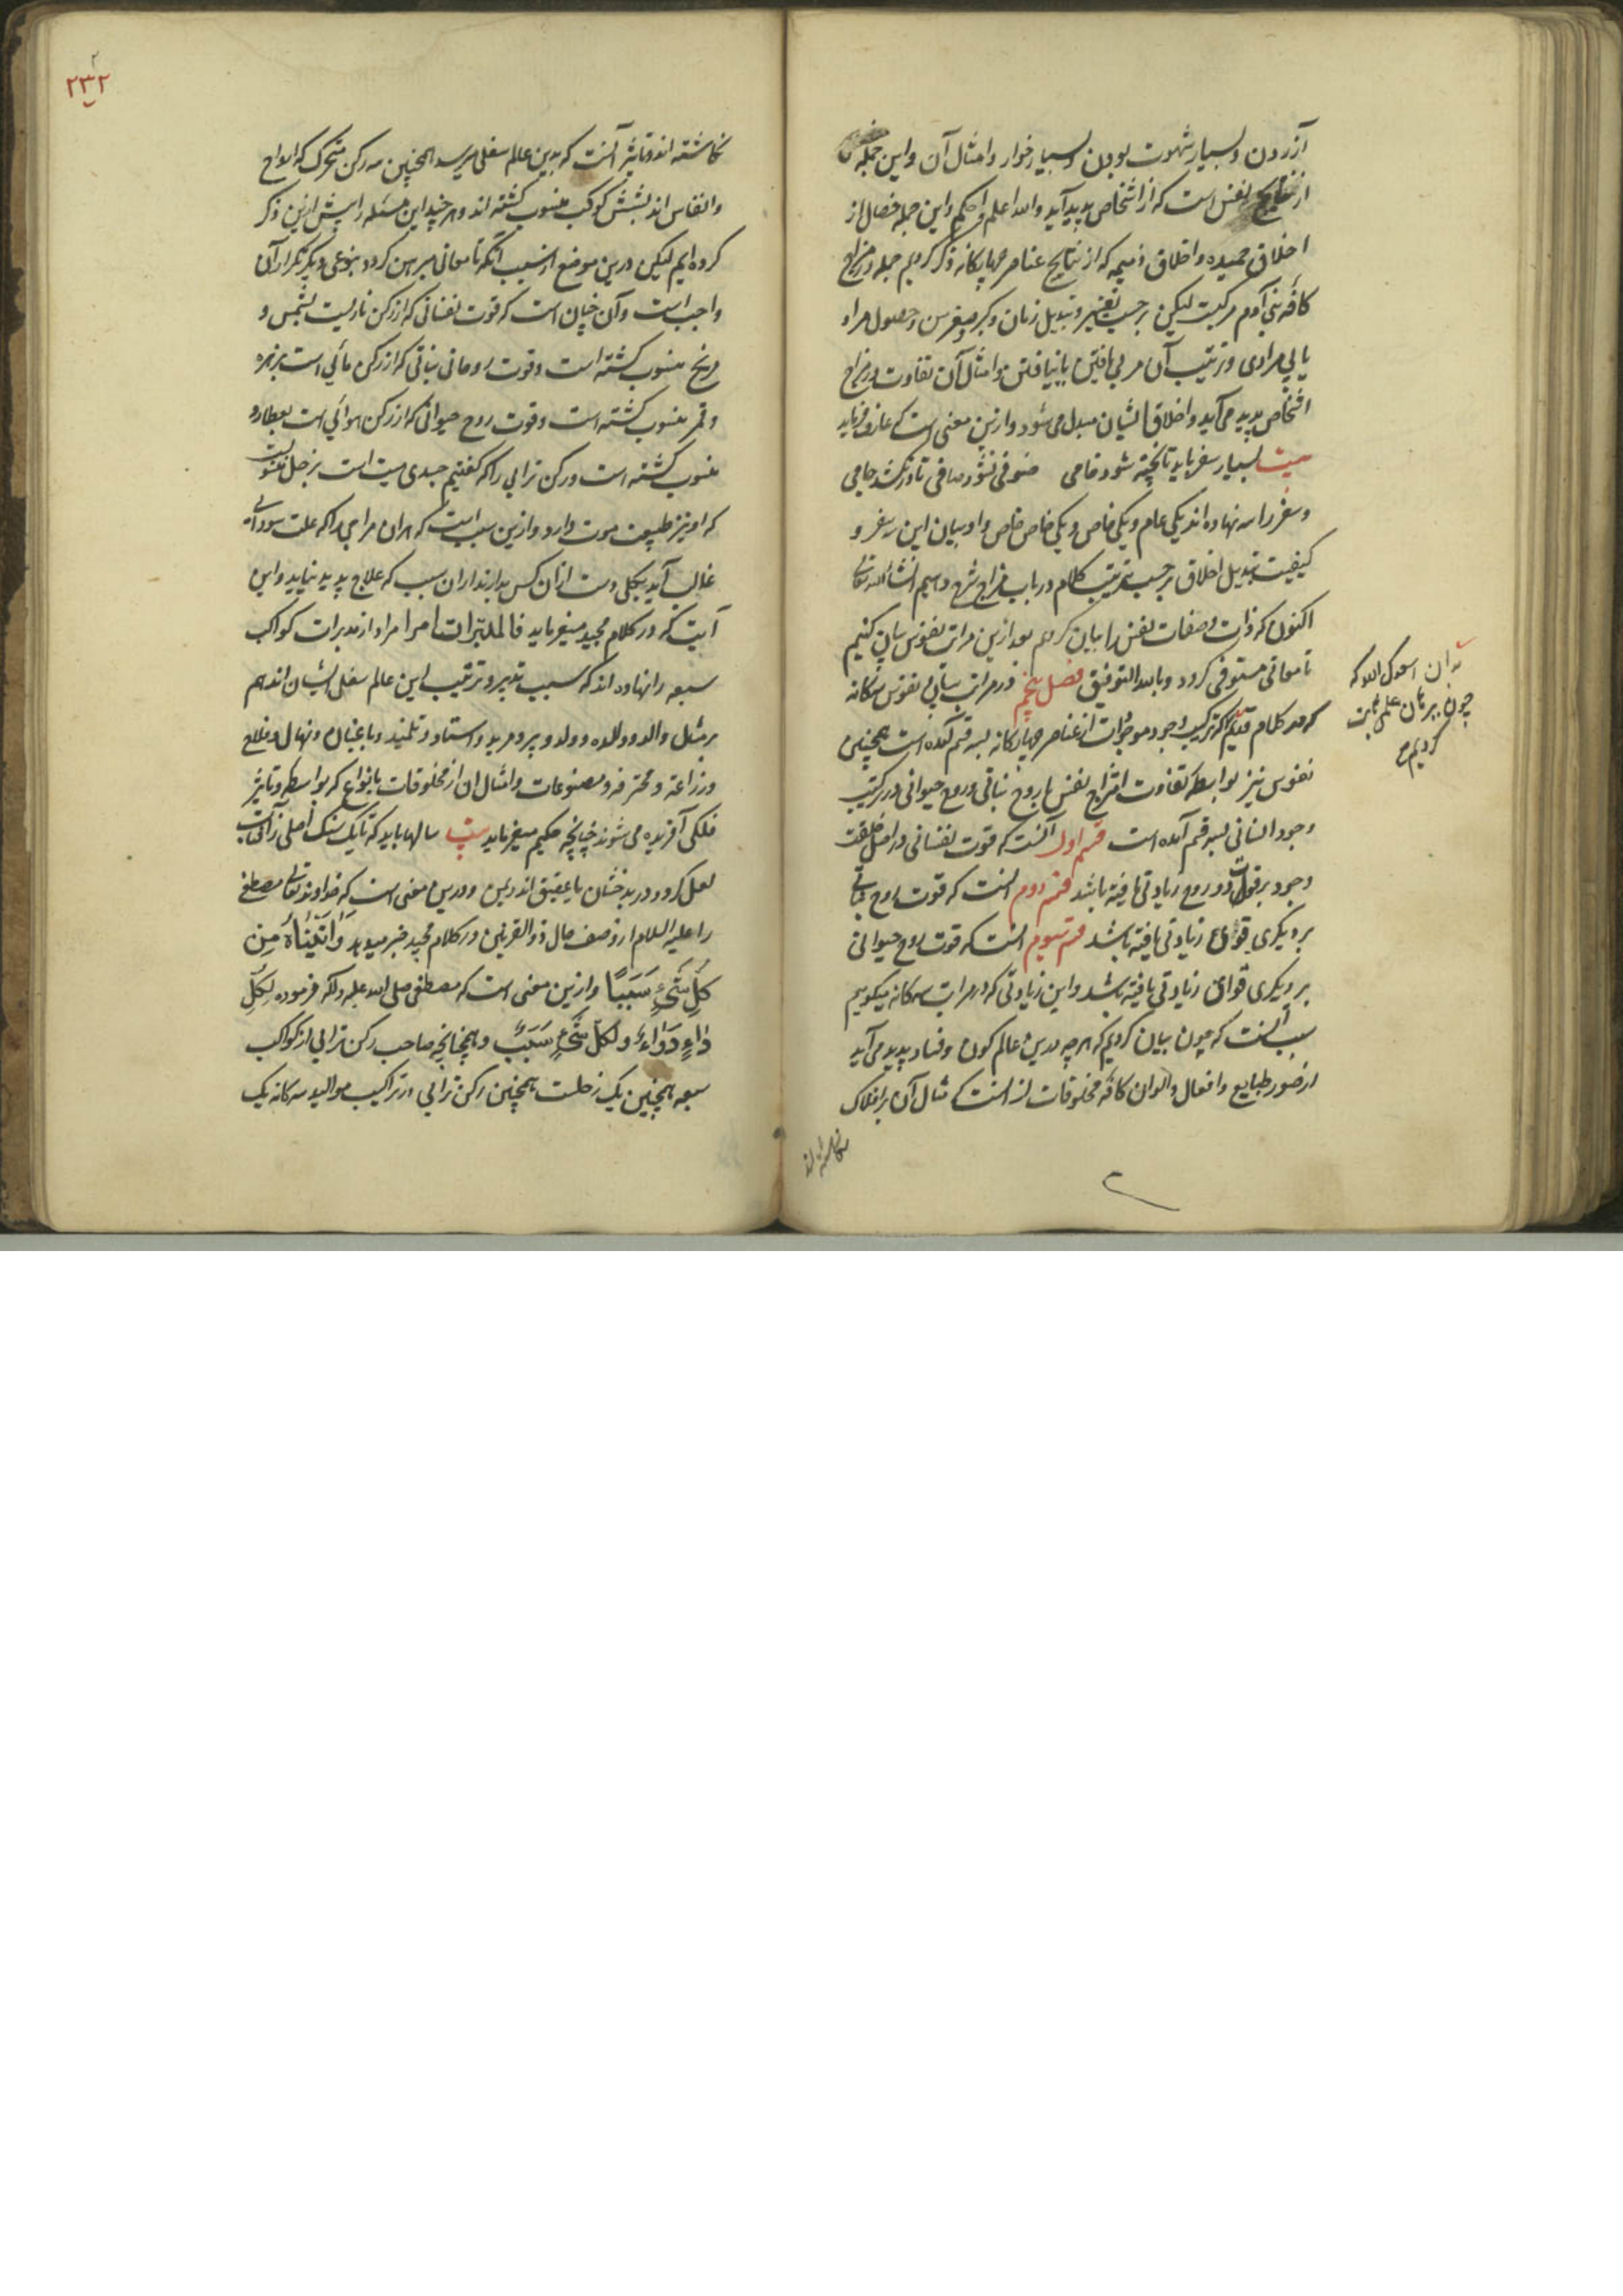 آزردن و بسیار شهوت بودن و بسیار خوار و امثال آن و این جمله
از نتایج نفس است که از اشخاص پدید آید والله اعلم و احکم و این جمله خصال از
اخلاق حمیده و اخلاق ذمیمه که از نتایج عناصر چهارکانه ذکر کردیم جمله در مزاج
کافه بنی آدم مرکبت لیکن برحسب تغییر و تبدیل زمان و کبر و صغر سن و حصول مراد
یا بی مرادی و ترتیب آن مربی یافتن یا نیافتن و امثال آن تفاوت در مزاج
اشخاص پدید می آید و اخلاق ایشان مبدل می شود و ازین معنی است که عارف فرماید
بیت بسیار سفر باید تا پخته شود خامی صوفی نشود صافی تا درنکشد جامی
و سفر را سه نهاده اند یکی عام و یکی خاص و یکی خاص خاص و او بیان این سفر و
کیفیت تبدیل اخلاق برحسب ترتیب کلام در باب مزاج شرح دهیم انشاءالله تعالی
اکنون که ذات و صفات نفس را بیان کردیم بعد ازین مراتب نفوس بیان کنیم
تا معانی مستوفی کردد و بالله التوفیق فصل پنجم در مراتب بیان نفوس سه کانه
که در کلام قدیم که ترکیب وجود موجودات از عناصر چهارکانه بسه قسم آمده است همچنین
نفوس نیز بواسطه تفاوت امتزاج نفس با روح نباتی و روح حیوانی در ترکیب
وجود انسانی بسه قسم آمده است قسم اول آنست که قوت نفسانی در اصل خلقت
وجود بر قوات دو روح زیادتی یافته باشد قسم دوم آنست که قوت روح نباتی
بر دیکری قوای زیادتی یافته باشد قسم سیوم آنست که قوت روح حیوانی
بر دیکری قوای زیادتی یافته باشد و این زیادتی که در مراتب سه کانه میکوییم
سبب آنست که چون بیان کردیم که هرچه درین عالم کون و فساد پدید می آید
از صور طبایع و افعال و الوان کافه مخلوقات از آنست که مثال آن بر افلاک
بدان اسعدک الله که
چون ببرهان علمی ثابت
کردیم
نکاشته اند
۲۳۲
نکاشته اند و تاثیر آنست که بدین عالم سفلی میرسد همچنین سه رکن متحرک که ارواح
و انفاس اند بشش کوکب منسوب کشته اند و هر چند این مسئله را پیش ازین ذکر
کرده ایم لیکن درین موضع از سبب آنکه تا معانی مبرهن کردد بنوعی دیکر تکرار آن
واجب است و آن چنان است که قوت نفسانی که از رکن ناریست بشمس و
مریخ منسوب کشته است و قوت روحانی نباتی که از رکن مائی است بزهره
و قمر منسوب کشته است و قوت روح حیوانی که از رکن هوائی است بعطارد
منسوب کشته است و رکن ترابی را که کفتیم جسدی میت است بزحل منسوبست
که او نیز طبیعت موت دارد و ازین سبب است که هر آن مزاجی را که علت سودای
غالب آید بکلی دست از آن کس بدارند از آن سبب که علاج پدید نیاید و این
آیت که در کلام مجید میفرماید فالمدبّرات امرا مراد از مدبرات کواکب
سبعه را نهاده اند که سبب تدبیر و ترتیب این عالم سفلی ایشان اند هم
بر مثل والد و والده و ولد و پیر و مرید و استاد و تلمیذ و باغبان و نهال و فلاح
و زراعة و محترفه و مصنوعات و امثال آن از مخلوقات بانواع که بواسطه و تاثیر
فلکی آفریده می شوند چنانچه حکیم میفرماید بیت سالها باید که تا یک سنک اصلی ز آفتاب
لعل کردد در بدخشان یا عقیق اندر یمن و درین معنی است که خداوند تعالی مصطفی
را علیه السلام از وصف حال ذوالقرنین در کلام مجید خبر میدهد وَآتَیْنَاهُ مِن
کُلِّ شَیْءٍ سَبَبًا و ازین معنی است که مصطفی صلی الله علیه و آله فرموده لِکُلِّ
دَاءٍ دَوَاءٌ وَلِکُلِّ شَیْءٍ سَبَبٌ و همچنانچه صاحب رکن ترابی از کواکب
سبعه همچنین یک زحلست همچنین رکن ترابی در تراکیب موالید سه کانه یک